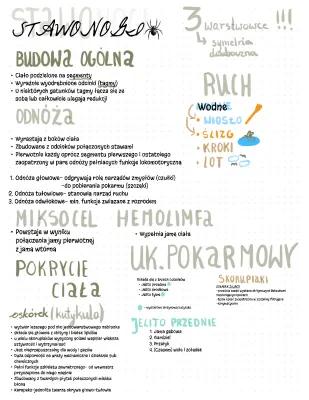 STAWONOGI
3 warstwowce !!!
↳ symetria dwuboczna
BUDOWA OGÓLNA
• Ciało podzielone na segmenty
• Wyraźnie wyodrębnione odcinki (tagmy)
• U niektórych gatunków tagmy łącza się ze
sobą lub całkowicie ulegają redukcji
RUCH
Wodne
• WIOSŁO
• ŚLIZG
• KROKI
• LOT
ODNÓŻA
• Wyrastają z boków ciała
• Zbudowane z odcinków połączonych stawami
• Pierwotnie każdy oprócz segmentu pierwszego i ostatniego
zaopatrzony w parę odnóży pełniących funkcje lokomotoryczne
1. Odnóża głowowe- odgrywają rolę narządów zmysłów (czułki)
-do pobierania pokarmu (szczęki)
2. Odnóża tułowiowe- stanowią narząd ruchu
3. Odnóża odwłokowe- min. funkcje związane z rozrodem
MIKSOCEL
• Powstaje w wyniku
połączenia jamy pierwotnej
z jamą wtórną
HEMOLIMFA
• Wypełnia jamę ciała
UK. POKARMOWY
Składa się z trzech odcinków
• Jelita przednie
• Jelita środkowe
• Jelita tylne
SKORUPIAKI
JELITO PRZEDNIE
1. Jama gębowa
2. Gardziel
3. Przełyk
4. Czasowe wole i żołądek
POKRYCIE
CIAŁA
oskórek (kutykula)
• wytwór leżącego pod nim jednowarstwowego nabłonka
• składa się głównie z chityny i białek
• Jest nieprzepuszczalny dla wody i gazów
• Duża odporność na urazy mechaniczne i działanie lub
chemicznych
• Pełni funkcje szkieletu zewnętrznego- od wewnątrz
przyczepione do niego mięśnie
• Zbudowany z twardych płytek połączonych miękką
błoną